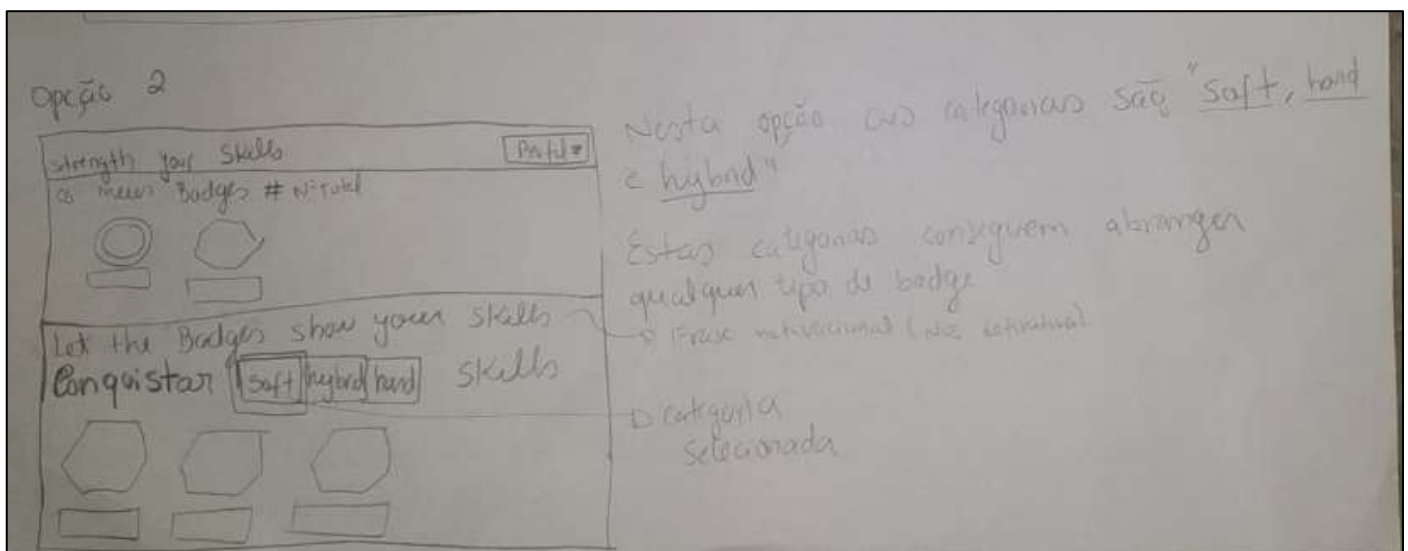 Opção 2
strength your Skills
Perfil
Os meus Badges # Nº total
Let the Badges show your skills
Conquistar soft hybrid hard skills
Nesta opção as categorias são "Soft, hard
e hybrid"
Estas categorias conseguem abranger
qualquer tipo de badge
Frase motivacional
categoria
selecionada